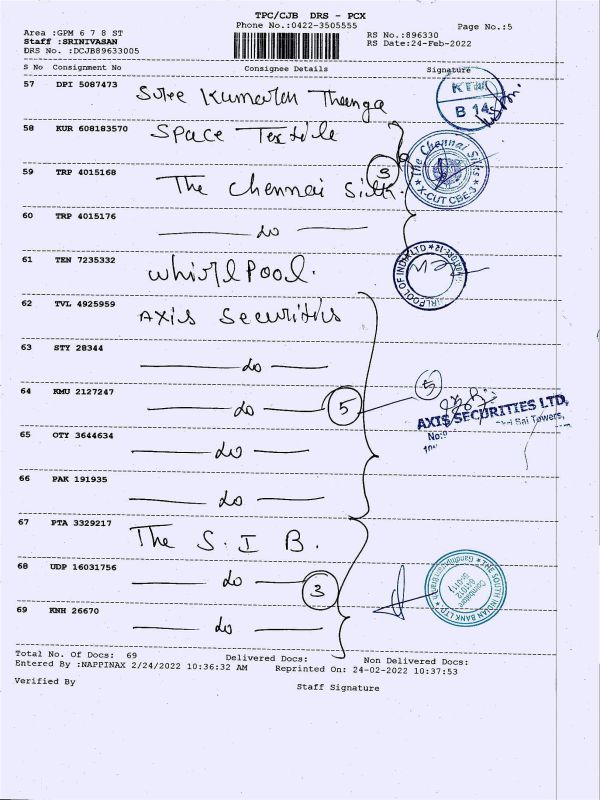 TPC/CJB DRS - PCX
Phone No.:0422-3505555
Page No.:5
Area :GPM 6 7 8 ST
Staff :SRINIVASAN
DRS No. :DCJB89633005
RS No.:896330
RS Date:24-Feb-2022
S No Consignment No Consignee Details Signature
57 DPI 5087473 Sree Kumaran Thanga
KTM
B 14
58 KUR 608183570 Space Textile
3
The Chennai Silks
X-CUT CBE-3
59 TRP 4015168 The Chennai Silk.
60 TRP 4015176 do
61 TEN 7235332 Whirlpool.
WHIRLPOOL OF INDIA LTD
62 TVL 4925959 Axis Securities
63 STY 28344 do
64 KMU 2127247 do 5
5
AXIS SECURITIES LTD,
Sai Towers,
No:
65 OTY 3644634 do
66 PAK 191935 do
67 PTA 3329217 The S. I B.
68 UDP 16031756 do 3
THE SOUTH INDIAN BANK LTD
Coimbatore
69 KNH 26670 do
Total No. Of Docs: 69 Delivered Docs: Non Delivered Docs:
Entered By :NAPPINAX 2/24/2022 10:36:32 AM Reprinted On: 24-02-2022 10:37:53
Verified By Staff Signature